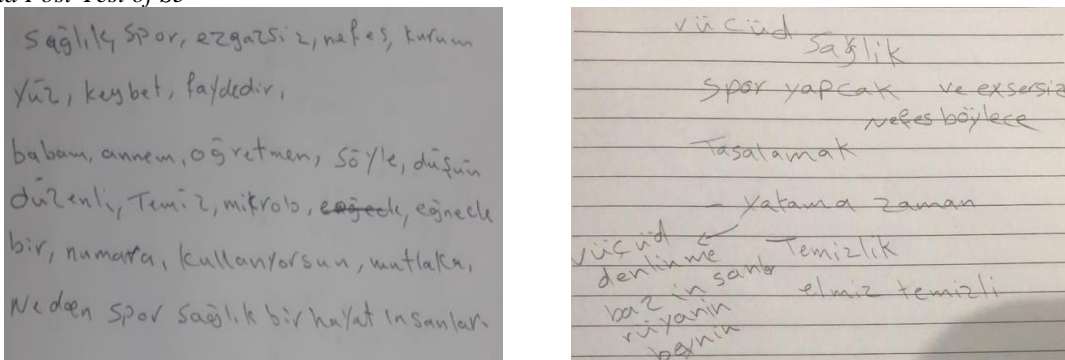 Post Test of S3
Sağlık, spor, ezgazsiz, nefes, kurum
yüz, keybet, faydedir,
babam, annem, oğretmen, söyle, düşün
düzenli, Temiz, mikrob, eğneck
bir, numara, kullanyorsun, mutlaka,
Neden spor sağlık bir hayat insanlar.
vücüd
Sağlik
Spor yapcak ve exsersiz
Nefes böylece
Tasalamak
- yatama zaman
vücüd
denlinme
baz insanlar
rüyanin
beynin
Temizlik
elmiz temizli